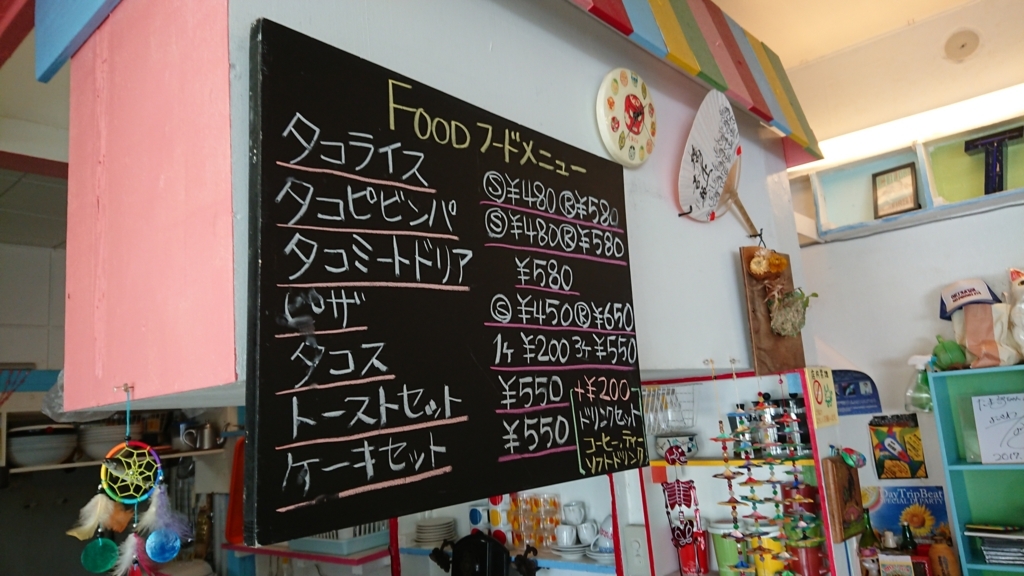 FOOD フードメニュー
タコライス Ⓢ¥480 Ⓡ¥580
タコピビンパ Ⓢ¥480 Ⓡ¥580
タコミートドリア ¥580
ピザ Ⓢ¥450 Ⓡ¥650
タコス 1ヶ¥200 3ヶ¥550
トーストセット ¥550
ケーキセット ¥550
+¥200
ドリンクセット
コーヒー、ティー
ソフトドリンク
T
DayTripBeat